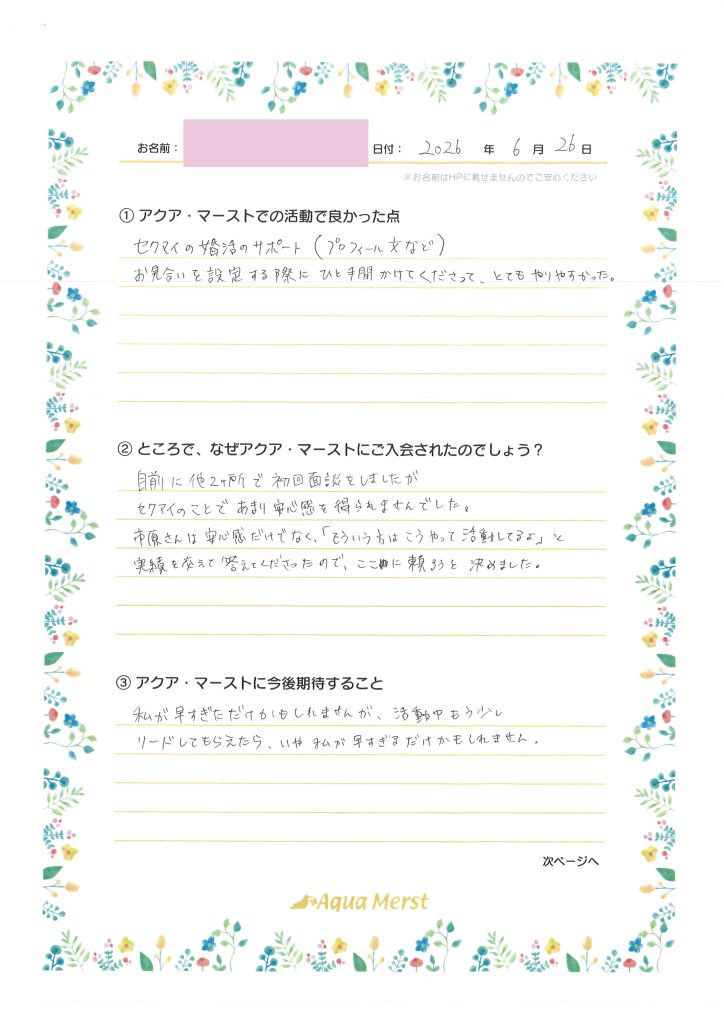 お名前： 日付： 2026 年 6 月 26 日
※お名前はHPに載せませんのでご安心ください
① アクア・マーストでの活動で良かった点
セクマイの婚活のサポート（プロフィール文など）
お見合いを設定する際にひと手間かけてくださって、とてもやりやすかった。
② ところで、なぜアクア・マーストにご入会されたのでしょう？
自前に他2ヶ所で初回面談をしましたが
セクマイのことであまり安心感を得られませんでした。
市原さんは安心感だけでなく、「そういう方はこうやって活動してるよ」と
実績を交えて答えてくださったので、ここに頼ろうと決めました。
③ アクア・マーストに今後期待すること
私が早すぎただけかもしれませんが、活動中もう少し
リードしてもらえたら、いや私が早すぎるだけかもしれません。
次ページへ
Aqua Merst